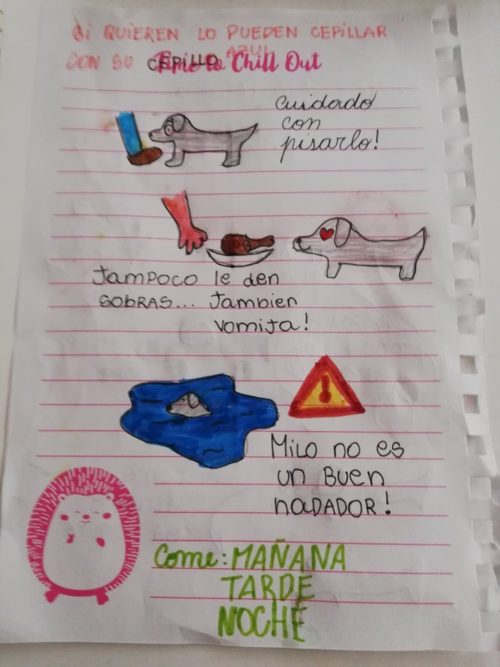 SI QUIEREN LO PUEDEN CEPILLAR
CON SU CEPILLO AZUL
Time to Chill Out
Cuidado
con
pisarlo!
TAMPOCO le den
SOBRAS... Tambien
vomita!
Milo no es
un Buen
naDADOR!
Come: MAÑANA
TARDE
NOCHE